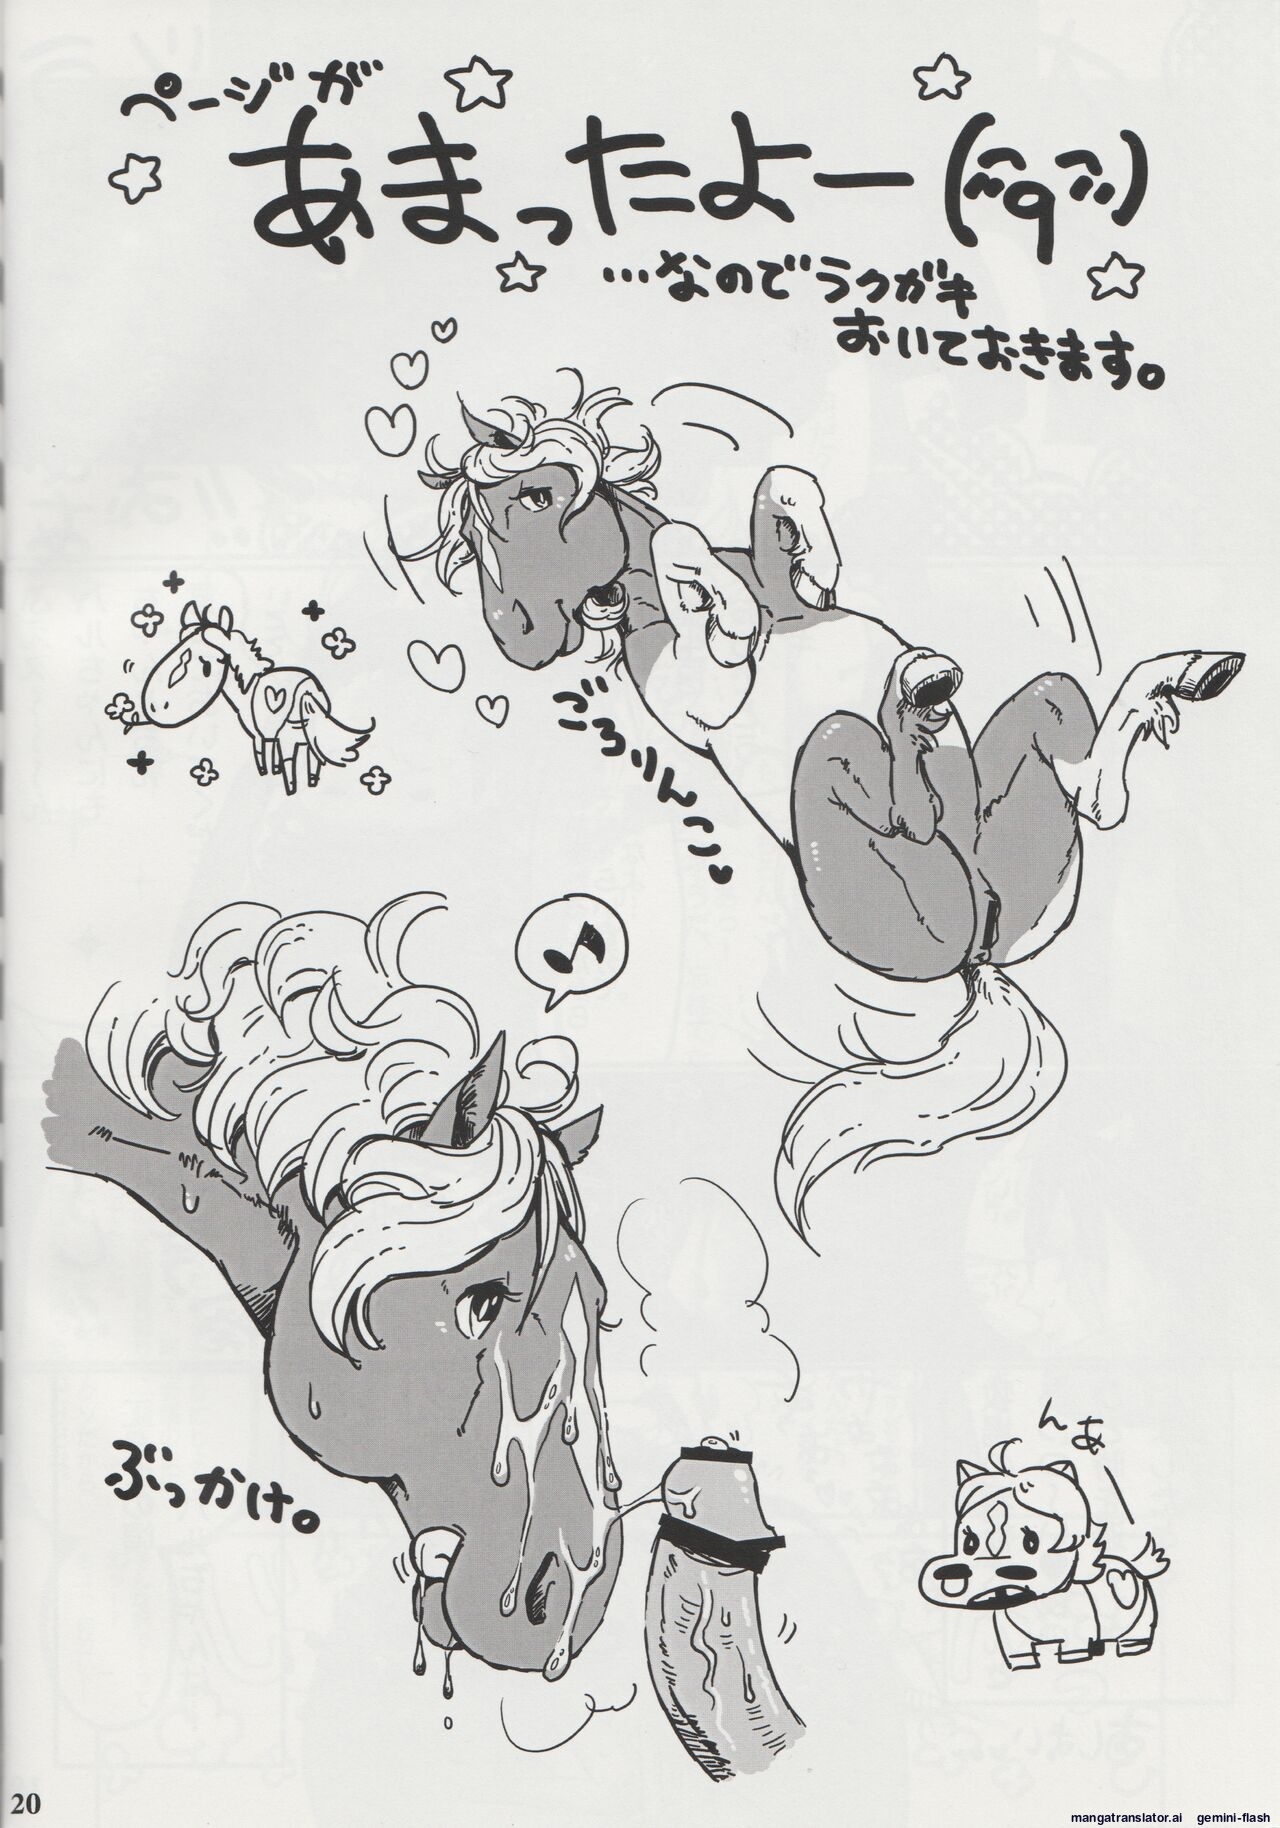 ページが
あまったよー(^q^)
…なのでラクガキ
おいておきます。
ごろりんこ♥
ぶっかけ。
んあ
20
mangatranslator.ai gemini-flash